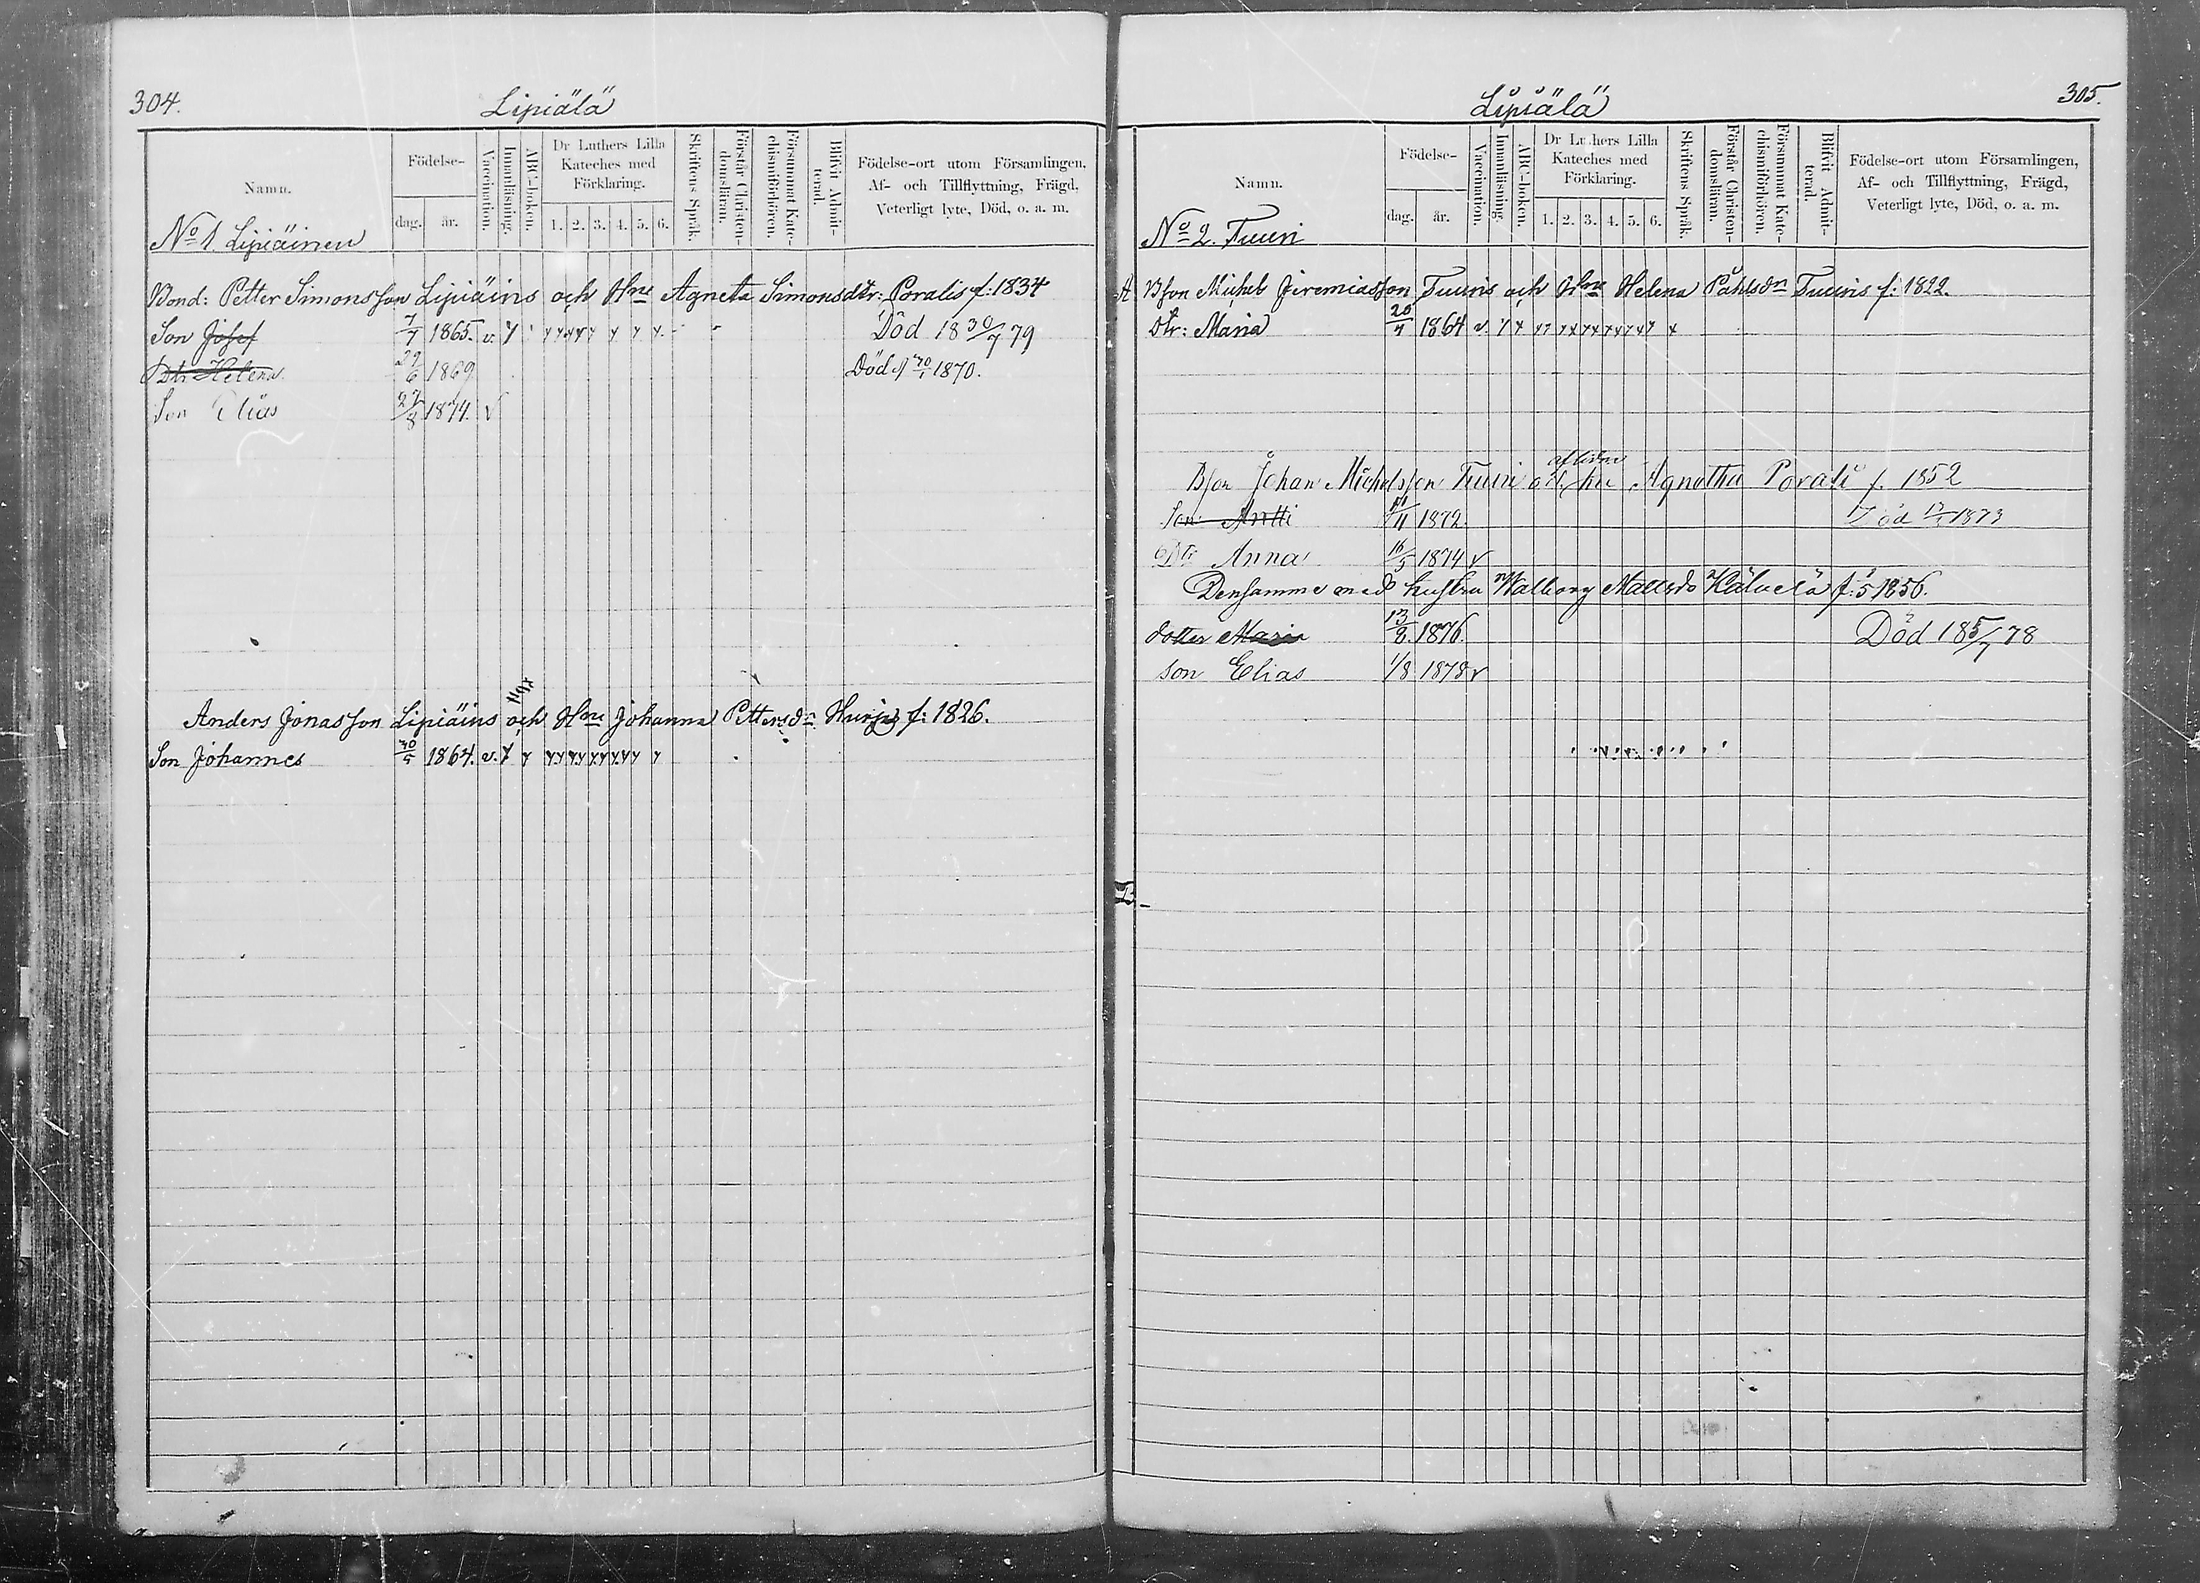 304.
Lipiälä
Namn.
Födelse-
dag.
år.
Vaccination.
Innanläsning.
ABC-boken.
Dr Luthers Lilla
Kateches med
Förklaring.
1. 2. 3. 4. 5. 6.
Skriftens Språk.
Förstår Christen-
domsläran.
Försummat Kate-
chismiförhören.
Blifvit Admit-
terad.
Födelse-ort utom Församlingen,
Af- och Tillflyttning, Frägd,
Veterligt lyte, Död, o. a. m.
No 1. Lipiäinen
Bond: Petter Simonsson Lipiäins och Hru Agneta Simonsdtr: Poralis f: 1834
Son Josef 7/7 1865. v. Död 18 30/7 79
Dtr Helena 29/6 1869 Död 30/1 1870.
Son Elias 27/8 1874. v
Anders Jonasson Lipiäins och Hru Johanna Pettersdr Hurja f: 1826.
Son Johannes 30/5 1864. v.
305.
Lipiälä
Namn.
Födelse-
dag.
år.
Vaccination.
Innanläsning.
ABC-boken.
Dr Luthers Lilla
Kateches med
Förklaring.
1. 2. 3. 4. 5. 6.
Skriftens Språk.
Förstår Christen-
domsläran.
Försummat Kate-
chismiförhören.
Blifvit Admit-
terad.
Födelse-ort utom Församlingen,
Af- och Tillflyttning, Frägd,
Veterligt lyte, Död, o. a. m.
No 2. Tuuri
A Bson Michel Jeremiasson Tuuris och Hru Helena Påhlsdr Tuuris f: 1822.
Dtr: Maria 20/7 1864 v.
aflidne
Bson Johan Michelsson Tuuri och hu Agnetha Porali f. 1852
Son Antti 1872. Död 1873
Dtr Anna 16/5 1874 v
Densamme med hustru Walborg Mattsdr Kälvelä f: 5 1856.
dotter Maria 13/2. 1876. Död 18 5/7 78
son Elias 1/8 1878 v
B.